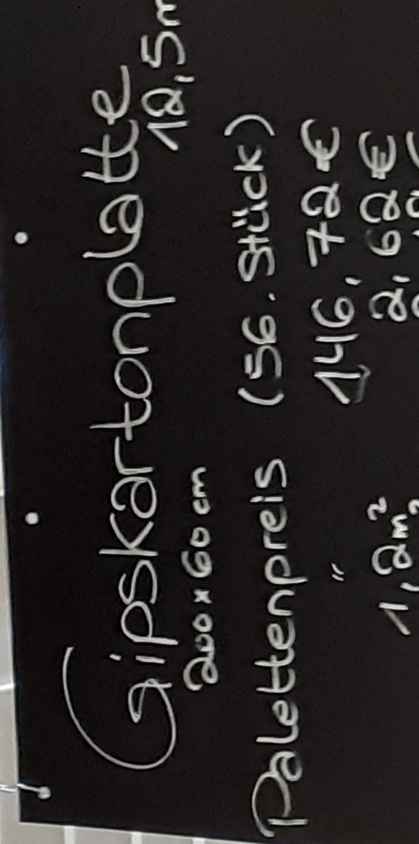 Gipskartonplatte
200x60 cm 12,5m
Palettenpreis (56. Stück)
" 146,72€
1,2m² 2,62€